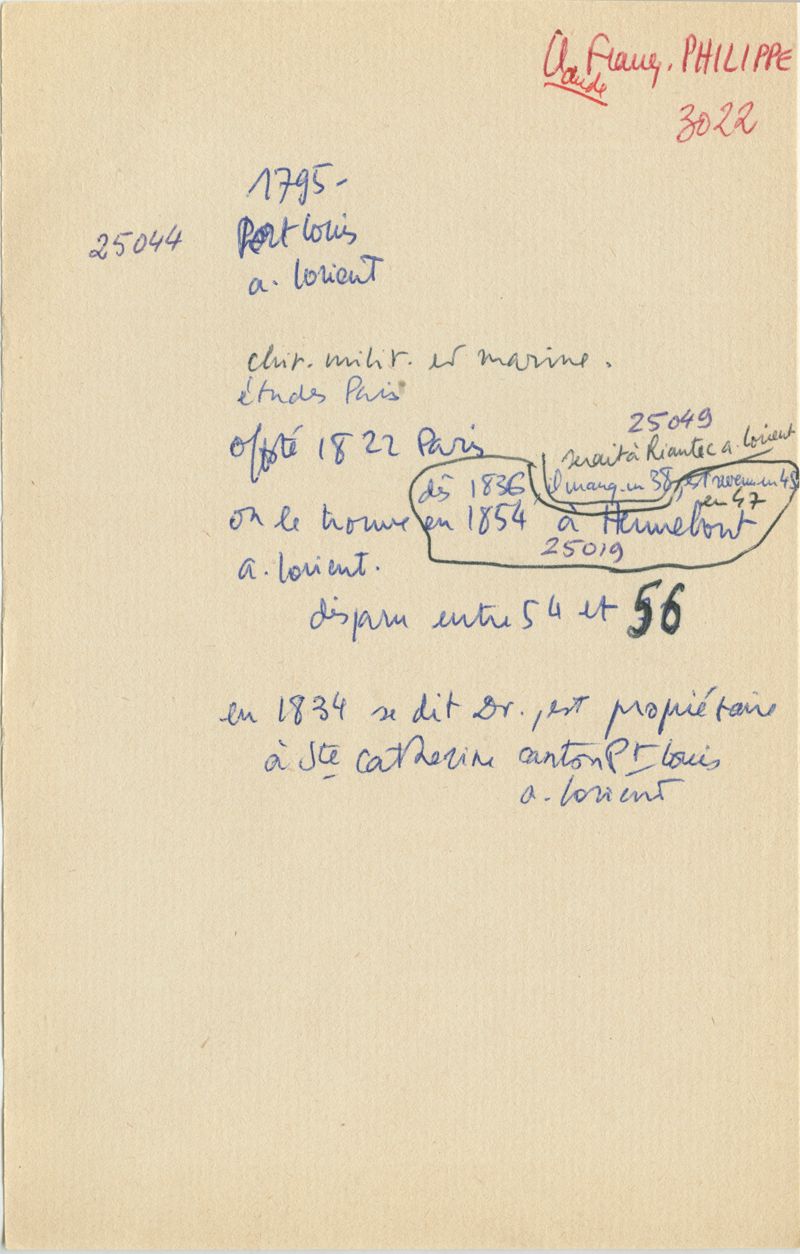 Claude Franç. PHILIPPE
3022
1795-
25044 Port Louis
a. Lorient
chir. milit. et marine.
études Paris
offté 1822 Paris
25049
serait à Riantec a. Lorient
dès 1836, il manq. en 38, est revenu en 43
en 47
on le trouve en 1854 à Hennebont
25019
a. Lorient.
disparu entre 54 et 56
en 1834 se dit Dr., est propriétaire
à Ste Catherine canton Pt Louis
a. Lorient